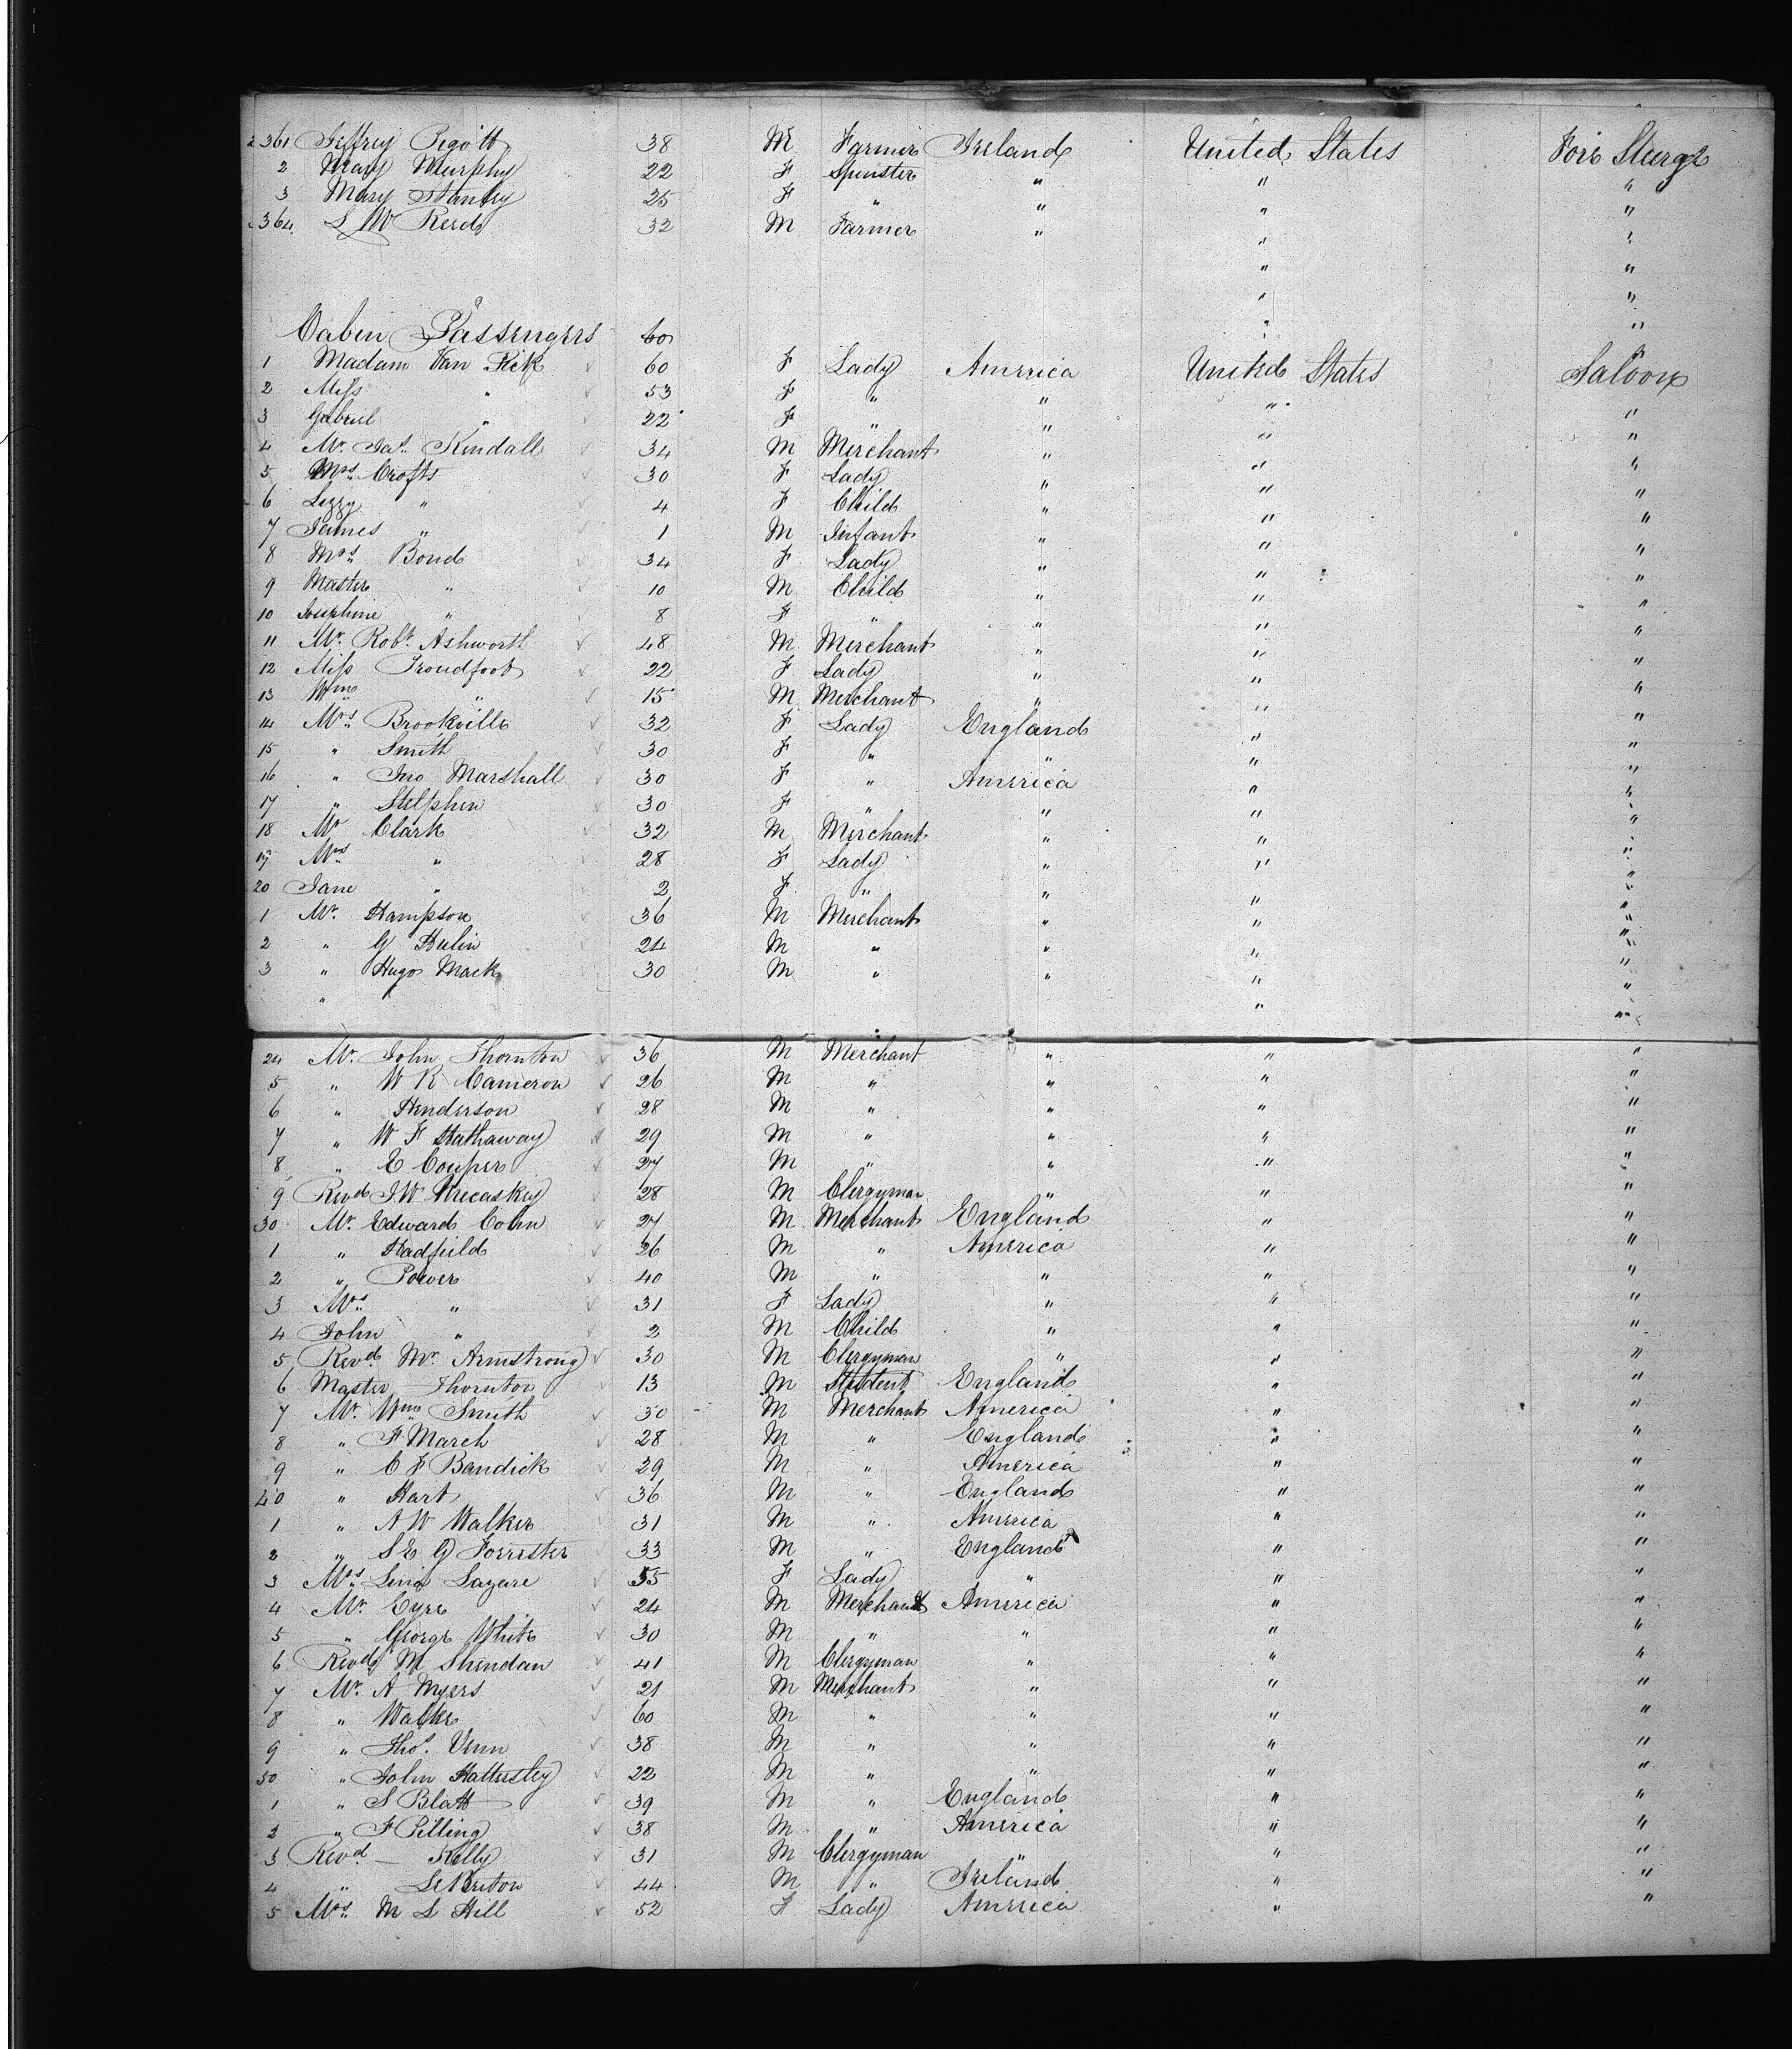 361 Jeffrey Pigott 38 M Farmer Ireland United States Fore Steerge
2 Mary Murphy 22 F Spinster " " "
3 Mary Stanley 25 F " " " "
364 S W Reid 32 M Farmer " " "
" "
" "
Cabin Passengers 60 " "
1 Madam Van 60 F Lady America United States Saloon
2 Miss " 53 F " " " "
3 Gabriel " 22 F " " " "
4 Mr. Jas. Kendall 34 M Merchant " " "
5 Mrs. Crofts 30 F Lady " " "
6 Lezzy " 4 F Child " " "
7 James " 1 M Infant " " "
8 Mrs. Bond 34 F Lady " " "
9 Master " 10 M Child " " "
10 Josephine " 8 F " " " "
11 Mr. Robt. Ashworth 48 M Merchant " " "
12 Miss Proudfoot 22 F Lady " " "
13 Wm " 15 M Merchant " " "
14 Mrs. Brookville 32 F Lady England " "
15 " Smith 30 F " " " "
16 " Jno Marshall 30 F " America " "
17 " Stelphen 30 F " " " "
18 Mr Clark 32 M Merchant " " "
19 Mrs. " 28 F Lady " " "
20 Jane " 2 F " " " "
1 Mr. Hampson 36 M Merchant " " "
2 " G Hulin 24 M " " " "
3 " Hugo Mack 30 M " " " "
" " "
24 Mr. John Thornton 36 M Merchant " " "
5 " W R Cameron 26 M " " " "
6 " Henderson 28 M " " " "
7 " W F Hathaway 29 M " " " "
8 " E Couper 27 M " " " "
9 Revd J W 28 M Clergyman " " "
30 Mr. Edward Cohn 27 M Merchant England " "
1 " Hadfield 26 M " America " "
2 " Power 40 M " " " "
3 Mrs. " 31 F Lady " " "
4 John " 2 M Child " " "
5 Revd. Mr. Armstrong 30 M Clergyman " " "
6 Master Thornton 13 M Student England " "
7 Mr. Wm. Smith 30 M Merchant America " "
8 " F March 28 M " England " "
9 " C F Bandick 29 M " America " "
40 " Hart 36 M " England " "
1 " A W Walker 31 M " America " "
2 " S E G Forrister 33 M " England " "
3 Mrs. Lazare 35 F Lady " " "
4 Mr. Eyre 24 M Merchant America " "
5 " George White 30 M " " " "
6 Revd M Sheridan 41 M Clergyman " " "
7 Mr. A Myers 21 M Merchant " " "
8 " Walke 60 M " " " "
9 " Thos. Venn 38 M " " " "
50 " John Hattersley 22 M " " " "
1 " S Blatt 39 M " England " "
2 " F Pilling 38 M " America " "
3 Revd. — Kelly 31 M Clergyman " " "
4 " LeBreton 44 M " Ireland " "
5 Mrs. M L Hill 52 F Lady America " "